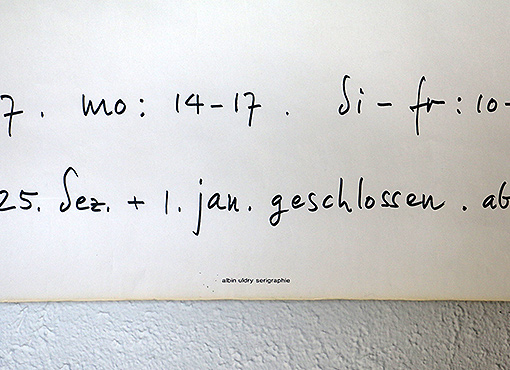 7. mo: 14-17. di - fr: 10-
25. dez. + 1. jan. geschlossen. ab
albin uldry serigraphie